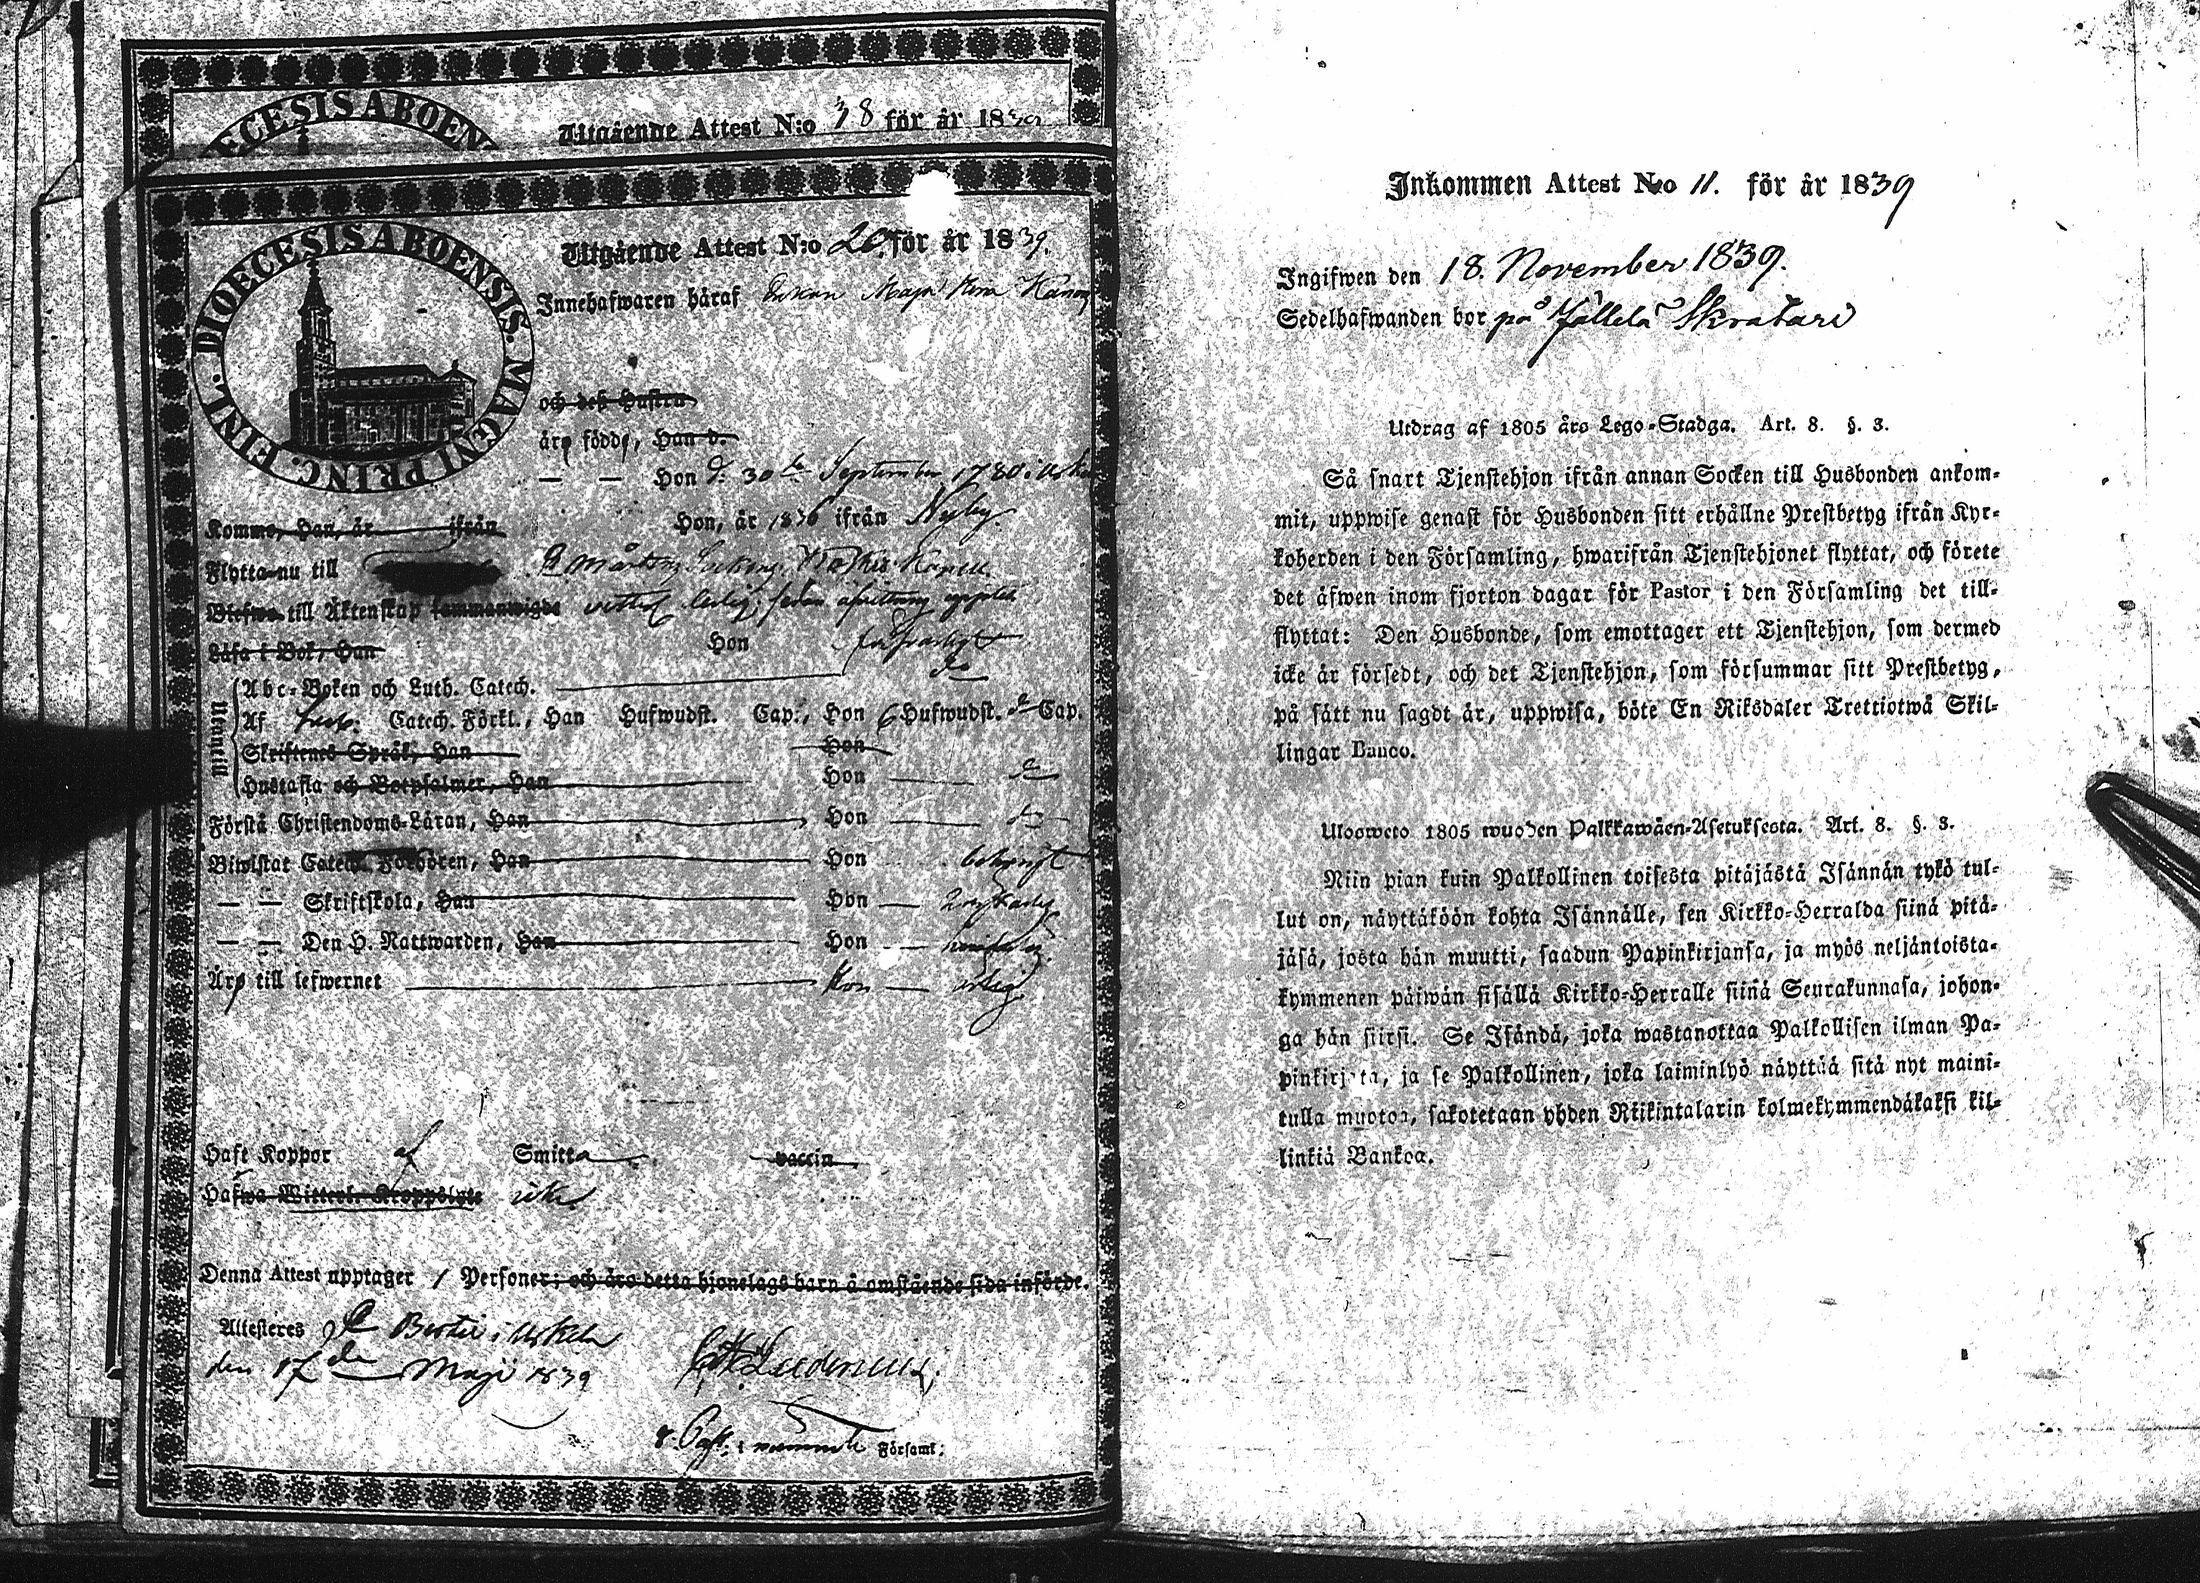 Utgående Attest N:o 38 för år 1839
DIOECESIS ABOENSIS. MAGNI PRINC. FINL.
Utgående Attest N:o 20. för år 1839.
Innehafwaren häraf Enkan Maja
och deß Hustru
äro född, Han d.
— — Hon d. 30 September 1780 i
Kommo, Han, år ifrån Hon, år 1836 ifrån Nyby.
Flytta nu till S:t Mårtens Sockens Kapell
Blefwo till Äktenskap sammanwigde ledig, sedan afvittring
Läsa i Bok, Han Hon försvarligt
Utantill
Abc-Boken och Luth. Catech. do
Af Catech. Förkl., Han Hufwudst. Cap., Hon 6 Hufwudst. Cap.
Skriftenes Språk, Han Hon
Hustafla och Botpsalmer, Han Hon do
Förstå Christendoms-Läran, Han Hon do
Biwistat Catech. Förhören, Han Hon
— — Skriftskola, Han Hon
— — Den H. Nattwarden, Han Hon
Äro till lefwernet Hon ärlig
Haft Koppor af Smitta vaccin
Hafwa Witterl. Kroppslyte icke
Denna Attest upptager 1 Personer; och äro detta hjonelags barn å omstående sida införde.
Attesteras af Bertil i Uskela
den 17de Maji 1839
v. Past. i nämnde Församl:
Inkommen Attest N:o 11. för år 1839
Ingifwen den 18. November 1839.
Sedelhafwanden bor på Jällelä Skratari
Utdrag af 1805 års Lego-Stadga. Art. 8. §. 3.
Så snart Tjenstehjon ifrån annan Socken till Husbonden ankom-
mit, uppwise genast för Husbonden sitt erhållne Prestbetyg ifrån Kyr-
koherden i den Församling, hwarifrån Tjenstehjonet flyttat, och förete
det äfwen inom fjorton dagar för Pastor i den Församling det till-
flyttat: Den Husbonde, som emottager ett Tjenstehjon, som dermed
icke är försedt, och det Tjenstehjon, som försummar sitt Prestbetyg,
på sätt nu sagdt är, uppwisa, böte En Riksdaler Trettiotwå Skil-
lingar Banco.
Ulosweto 1805 wuoden Palkkawäen-Asetuksesta. Art. 8. §. 3.
Niin pian kuin Palkollinen toisesta pitäjästä Isännän tykö tul-
lut on, näyttäköön kohta Isännälle, sen Kirkko-Herralda siinä pitä-
jäsä, josta hän muutti, saadun Papinkirjansa, ja myös neljäntoista-
kymmenen päiwän sisällä Kirkko-Herralle siinä Seurakunnasa, johon-
ga hän siirsi. Se Isändä, joka wastanottaa Palkollisen ilman Pa-
pinkirjata, ja se Palkollinen, joka laiminlyö näyttää sitä nyt maini-
tulla muotoa, sakotetaan yhden Riikintalarin kolmekymmendäkaksi kil-
linkiä Bankoa.